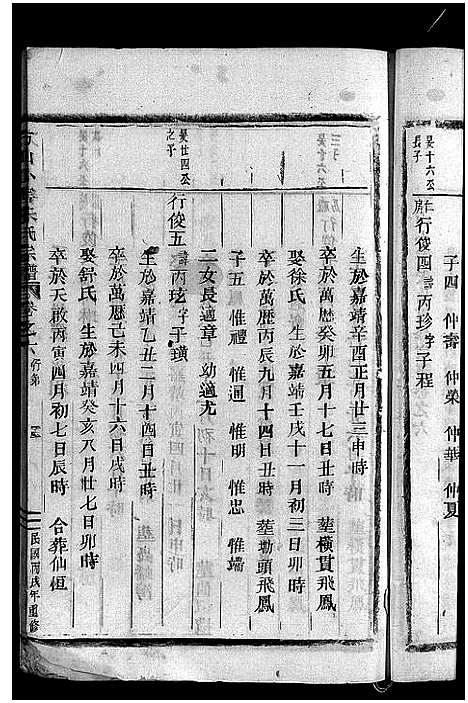 子四 仲壽 仲榮 仲華 仲夏
晏十六公
長子
行俊四 諱丙珍 字子程
生於嘉靖辛酉正月廿三申時
卒於萬曆癸卯五月十七日丑時 塟橫貫飛鳳
娶徐氏 生於嘉靖壬戌十一月初三日卯時
卒於萬歷丙辰九月十四日丑時 塟坳頭飛鳳
子五 惟禮 惟週 惟明 惟忠 惟端
二女長適章 幼適尤
晏廿四公
之子
行俊五 諱丙玹 字于璜
生於嘉靖乙丑二月十四日丑時
卒於萬歷己未四月十六日戌時
娶舒氏 生於嘉靖癸亥八月廿七日卯時
卒於天啟丙寅四月初七日辰時 合葬仙恒
氏宗譜 卷之六 行第
民國丙戌年重修